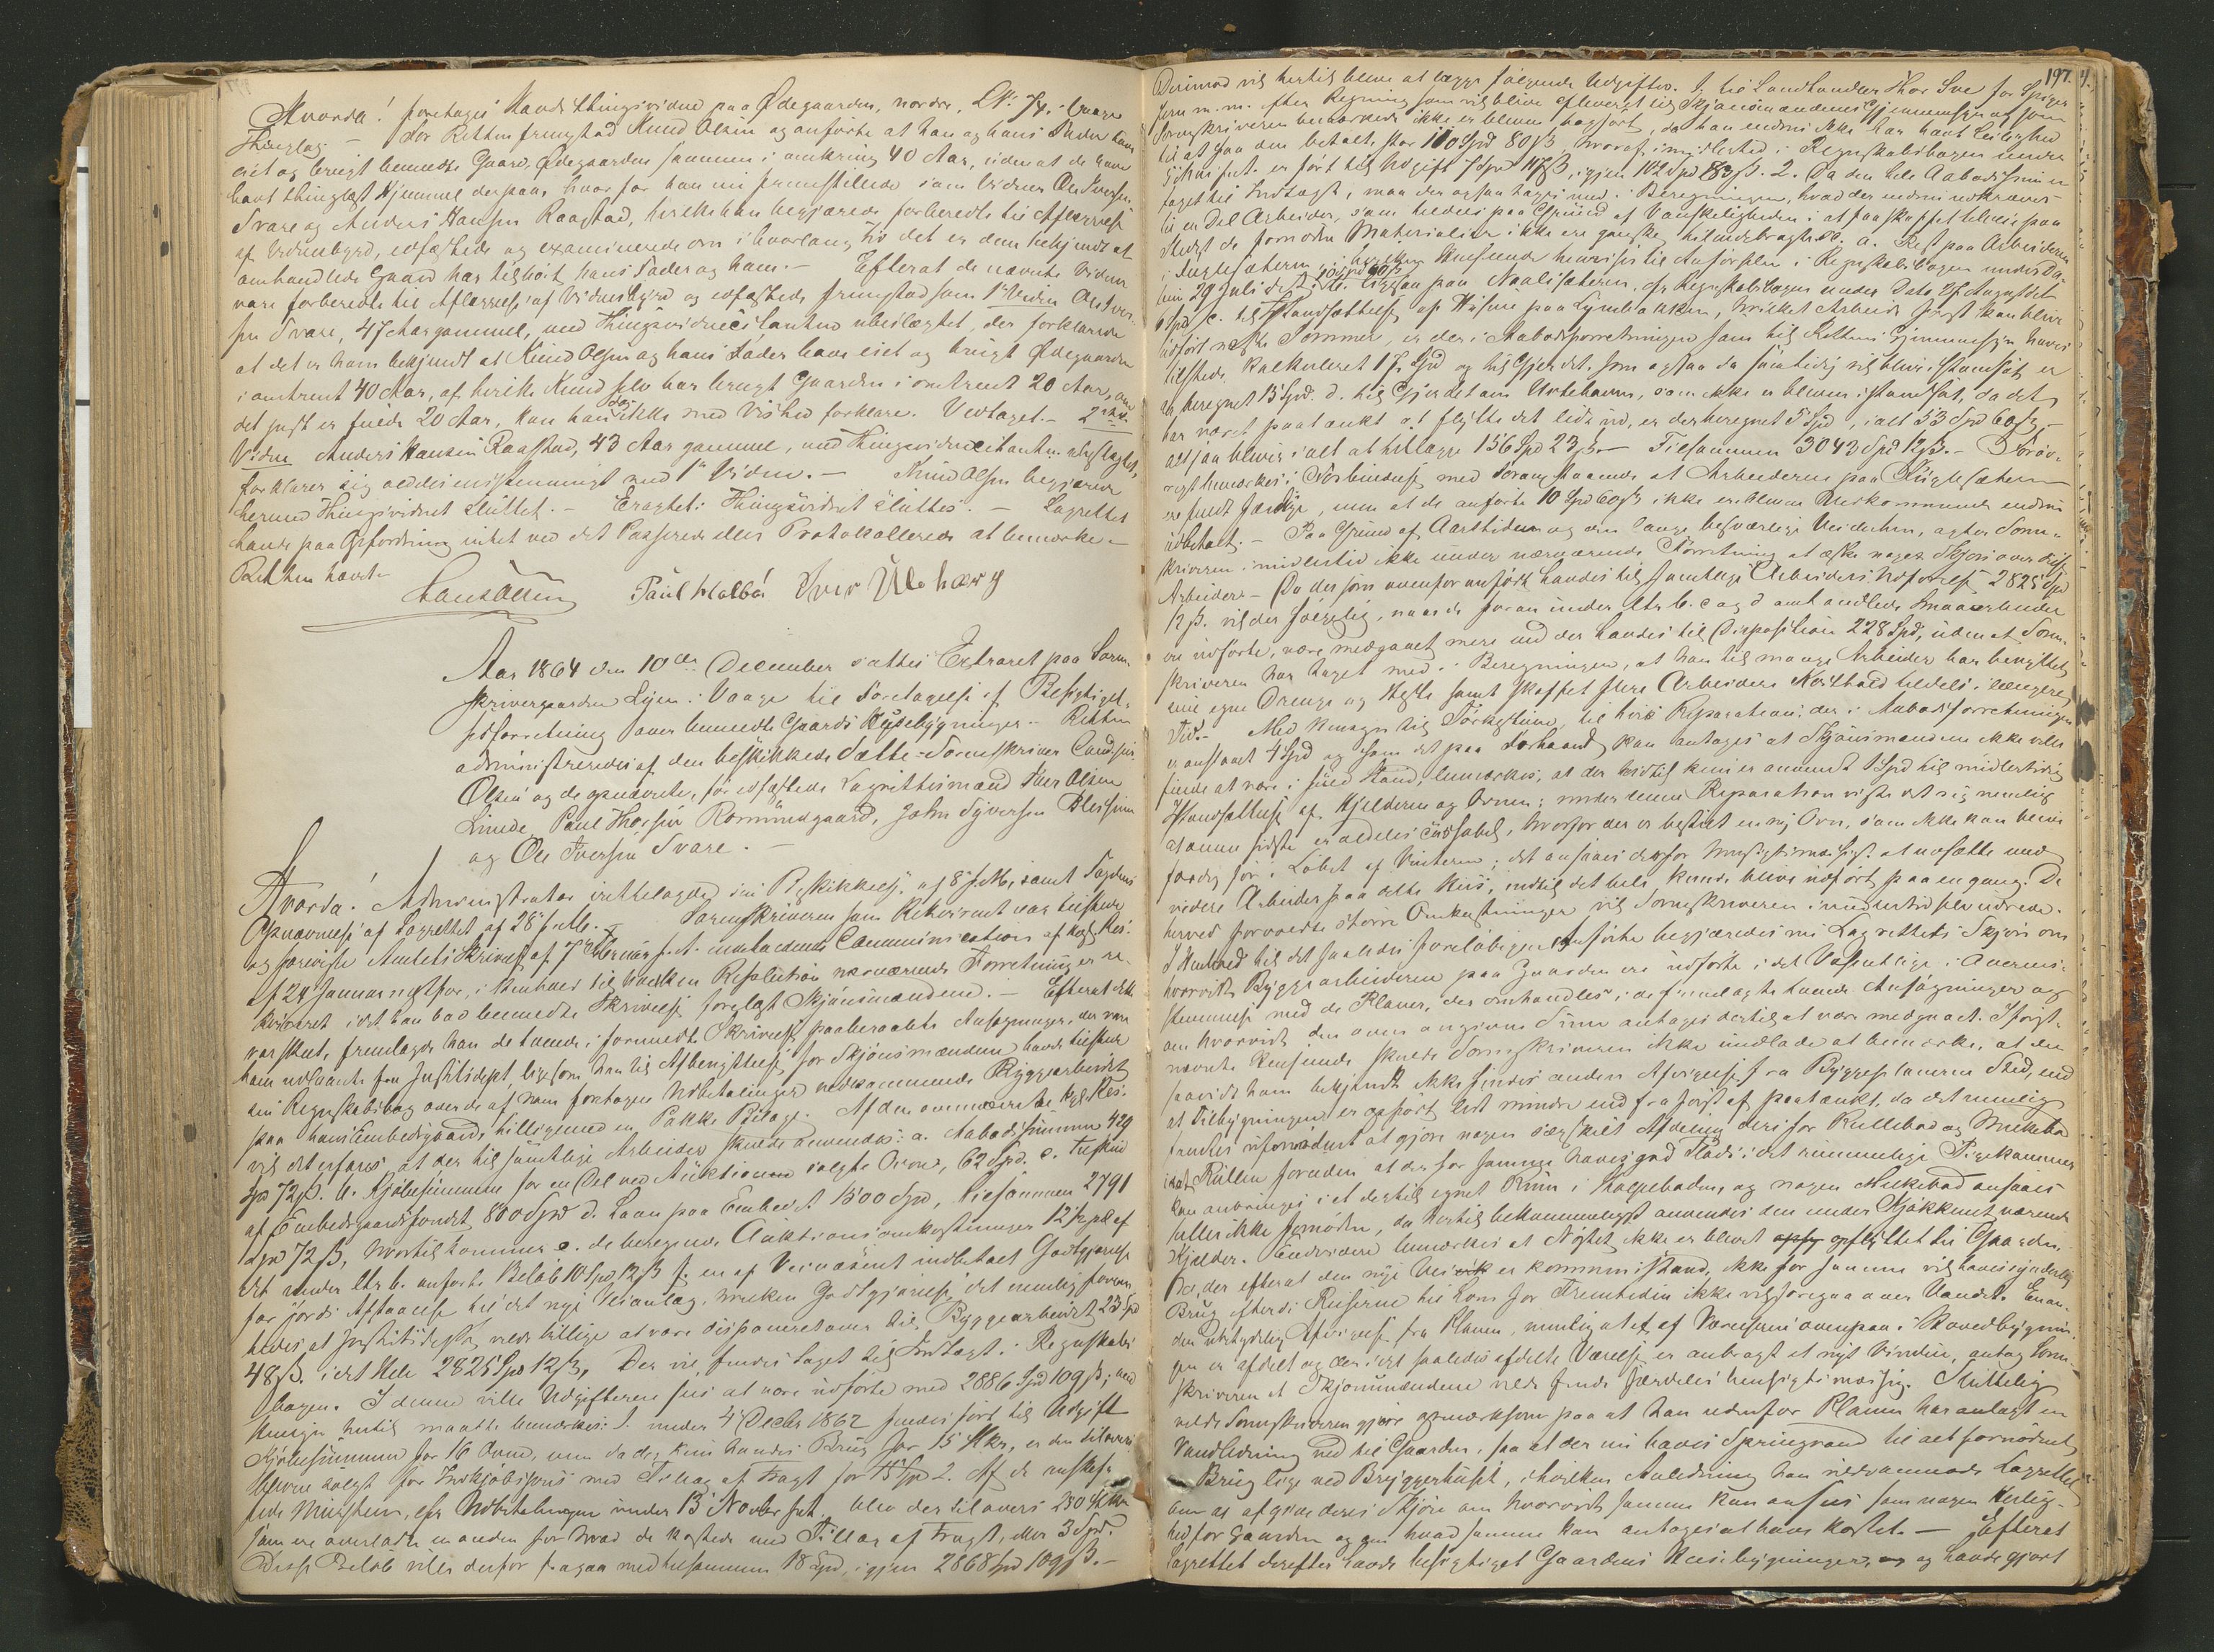 Hvorda! foretages Hævdsthingsvidne paa Ødegaarden, nordre, LNr 74. Vaage
Thinglag. – For Retten fremstod Knud Olsen og anførte at han og hans Fader have
eiet og brugt bemeldte Gaard, Ødegaarden sammen i omkring 40 Aar, uden at de have
havt thinglæst Hjemmel derpaa, hvorfor han nu fremstillede som Vidner Ole Iversen
Svare og Anders Hansen Raastad, hvilke han begjærede forberedte til Aflæggelse
af Vidnesbyrd, edfæstede og examinerede om i hvorlang Tid det er dem bekjendt at
omhandlede Gaard har tilhørt hans Fader og ham. – Efterat de nævnte Vidner
vare forberedte til Aflæggelse af Vidnesbyrd og edfæstede fremstod som 1ste Vidne Ole Iver-
sen Svare, 47 Aar gammel, med Thingsvidnecitanten ubeslægtet, der forklarede
at det er ham bekjendt at Knud Olsen og hans Fader have eiet og brugt Ødegaarden
i omtrent 40 Aar, af hvilke Knud selv har brugt Gaarden i omtrent 20 Aar, om
det just er fulde 20 Aar, kan han dog ikke med Vished forklare. Vedtaget. – 2det
Vidne Anders Hansen Raastad, 43 Aar gammel, med Thingsvidnecitanten ubeslægtet,
forklarer sig aldeles enstemmigt med 1ste Vidne. – Knud Olsen begjærede
hermed Thingsvidnet sluttet. – Eragtet: Thingsvidnet sluttes. – Lagrettet
havde paa Opfordring intet ved det Passerede eller Protokollerede at bemærke. –
Retten hævet. –
Hans Olsen Paul Iver Ulehaug
Aar 1864 den 10de December sattes Extraret paa Soren-
skrivergaarden Lyen i Vaage til Foretagelse af Besigtigel-
sesforretning over bemeldte Gaards Huusebygninger. – Retten
administreredes af den beskikkede Sætte-Sorenskriver Cand. jur.
Olsen og de opnævnte, før edfæstede Lagrettesmænd Iver Olsen
Linede, Paul Thorsen Romundgaard, John Syversen Blessum
og Ole Iversen Svare. –
Hvorda! Administrator irettelagde sin Beskikkelse af 8 f. M., samt Fogdens
Opnævnelse af Lagrettet af 28 f. Mts. – Sorenskriveren som Rekvirent var tilstede
og foreviste Amtets Skrivelse af 7 Februar f. A. indeholdende Communication af kgl. Res.
af 24 Januar næstfør, i Henhold til hvilken Resolution nærværende Forretning er re-
kvireret idet han bad bemeldte Skrivelse forelagt Skjønsmændene. – Efterat dette
var skeet, fremlagde han de tvende i formeldte Skrivelse paaberaabte Ansøgninger, der vare
ham udlaante fra Justitsdept., ligesom han til Afbenyttelse for Skjønsmændene havde tilstede
sin Regnskabsbog over de af ham foretagne Udbetalinger vedkommende Byggearbeidet
paa hans Embedsgaard, tilligemed en Pakke Bilage. Af den ovennævnte kgl. Res.
vil det erfares at der til samtlige Arbeider skulde anvendes: a. Aabodssummen 429
Spd 72 ß. b. Kjøbesummen for en Del ved Auktionen solgte Ovne, 62 Spd. c. Tilskud
af Embedsgaardsfondet 800 Spd d. Laan paa Embedet 1500 Spd, tilsammen 2791
Spd 72 ß, hvortil kommer e. de beregnede Auktionsomkostninger 12½ pCt af
det under Ltr b. anførte Beløb 10 Spd 12 ß f. en af Veivæsenet indbetalt Godtgjørelse
for Jords Afstaaelse til det nye Veianlæg, hvilken Godtgjørelse det nemlig forven-
tedes, at Justitsdept. vilde tillige at være disponeret over til Byggearbeidet 23 Spd
48 ß. i det Hele 2825 Spd 12 ß, Der vil findes taget til Indtægt i Regnskabs
bogen. I denne ville Udgifterne sees at være udførte med 2886 Spd 109 ß; med
Hensyn hertil maatte bemærkes: 1. under 4 Decbr 1862 findes ført til Udgift
Kjøbesummen for 16 Ovne, men da der kun havdes Brug for 15 Stkr., er den tilovers
blevne solgt for Indkjøbspris med Tillæg af Fragt for 15 Spd 2. Af de anskaf-
fede Mursteen, efter Udbetalingen under 13 Novbr s. A. blev der tilovers 250 Stkr
som ere overladte en anden for hvad de kostede med Tillæg af Fragt, eller 3 Spd.
Disse Beløb ville derfor fragaa med tilsammen 18 Spd, igjen 2868 Spd 109 ß. –
197.
Derimod vil hertil blive at lægge følgende Udgifter. 1, til Landhandler Thor Sve for Spiger
Jern m. m. efter Regning som vil blive eftervist til Skjønsmændenes Gjennemsyn og som
Sorenskriveren bemærkede ikke er bleven bogført, da han endnu ikke har havt Leilighed
til at faa den betalt, stor 110 Spd 80 ß, hvoraf imidlertid i Regnskabsbogen under
er ført til Udgift 7 Spd 117 ß, igjen 102 Spd 83 ß. 2. Da den hele Aabodssum er
taget til Indtægt, maa der ogsaa tages med i Beregningen, hvad der endnu udkræves
til en Del Arbeider, som tildels paa Grund af Vanskeligheden i at faa skaffet tilveie, paa
Stedet de fornødne Materialier ikke ere ganske tilendebragte. a. Rest paa Arbeiderne
i hvilken Henseende henvises til Anførslen i Regnskabsbogen under Da-
tum 29 Juli d. A. 10 Spd 60 ß b. ligesaa paa Naalisæteren, efter Regnskabsbogen under Dato 27 August
Spd c. til Istandsættelse af Husene paa Lyenbakken, hvilket Arbeide først kan blive
udført næste Sommer, er der i Aabodsforretningen som til Rettens Gjennemsyn haves
tilstede kalkuleret 17½ Spd og til Gjerdet som ogsaa da samtidig vil blive istandsat er
beregnet 15 Spd. d. til Gjerdet om Urtehaven, som ikke er bleven istandsat, da det
har været paatænkt at flytte det lidt ud, er der beregnet 5 Spd, ialt 53 Spd 60 ß. –
altsaa bliver ialt at tillægge 156 Spd 23 ß. – Tilsammen 3043 Spd 12 ß. – Forøv-
rigt bemærkes i Forbindelse med Foranstaaende at Arbeiderne paa
ere sendt færdige, men at de anførte 10 Spd 60 ß ikke ere blevne Vedkommende endnu
udbetalt. – Paa Grund af Aarstiden og den lange besværlige Veidethen, agter Soren-
skriveren imidlertid ikke under nærværende Forretning at æske noget Skjøn over disse
Arbeider. – Da der som ovenfor anført havdes til samtlige Arbeiders Udførelse 2825 Spd
12 ß. vil der følgelig, naar de foran under Ltr b. c og d omhandlede Smaaarbeider
ere udførte, være medgaaet mere end der havdes til Disposition 228 Spd, uden at Soren-
skriveren har taget med i Beregningen, at han til mange Arbeider har benyttet
sine egne Drenge og Heste samt skaffet flere Arbeidere Kosthold tildels i længere
Tid. – Med Hensyn til Tørkestuen, til hvis Reparation der i Aabodsforretningen
er ansat 4 Spd og som det paa Forhaand kan antages at Skjønsmændene ikke ville
finde at være i fuld Stand, bemærkes, at der hidtil kun er anvendt 1 Spd til midlertidig
Istandsættelse af Kjelderen og Ovnen; under denne Reparation viste det sig nemlig
at denne sidste er aldeles ubrugelig, hvorfor der er bestilt en ny Ovn, som ikke kan blive
færdig før i Løbet af Vinteren; det ansaaes derfor hensigtsmæssigst at udsætte med
videre Arbeider paa dette Huus, indtil det hele kunde blive udført paa en gang. De
herved forvoldte større Omkostninger vil Sorenskriveren imidlertid selv udrede.
I Henhold til det saaledes foreløbigen Anførte begjæredes nu Lagrettets Skjøn om
hvorvidt Byggearbeiderne paa Gaarden ere udførte i det Væsentlige i Overens-
stemmelse med de Planer, der omhandles i de fremlagte tvende Ansøgninger og
om hvorvidt den oven angivne Sum antages dertil at være medgaaet. I først-
nævnte Henseende skulde Sorenskriveren ikke undlade at bemærke, at der
saavidt ham bekjendt ikke findes anden Afvigelse fra Byggeplanerne Sted, end
at Tilbygningen er opført lidt mindre end fra først af paatænkt, da det nemlig
fandtes ufornødent at gjøre nogen særskilt Afdeling deri for Rullebod og Melkebod
idet Rullen foruden at der for samme haves god Plads i det rummelige Pigekammer
kan anbringes i et dertil egnet Rum i Stolpeboden, og nogen Melkebod ansaaes
heller ikke fornøden, da hertil bekvemmeligst anvendes den under Kjøkkenet værende
Kjelder. Endvidere bemærkes at Nøstet ikke er blevet opflyttet til Gaarden,
der efterat den nye Vei er kommen istand, ikke for samme vil haves synderlig
Brug efterdi Reiserne til Lom for Fremtiden ikke vil foregaa over Vandet. En an-
den ubetydelig Afvigelse fra Planen, nemlig at et af Værelserne ovenpaa i Hovedbygnin-
gen er afdelt og der i det saaledes afdelte Værelse er anbragt et nyt Vindue, antog Soren-
skriveren at Skjønsmændene vilde finde særdeles hensigtsmæssig. Sluttelig
vilde Sorenskriveren gjøre opmærksom paa at han udenfor Planen har anlagt en
Vandledning ned til Gaarden, saa at der nu haves Springvand til alt fornødent
Brug lige ved Bryggerhuset, i hvilken Anledning han ogsaa Lagrettet
om at afgive deres Skjøn om hvorvidt samme kan ansees som nogen Herlig-
hed for Gaarden og om hvad samme kan antages at have kostet. – Efterat
Lagrettet derefter havde besigtiget Gaardens Huusebygninger, og havde gjort